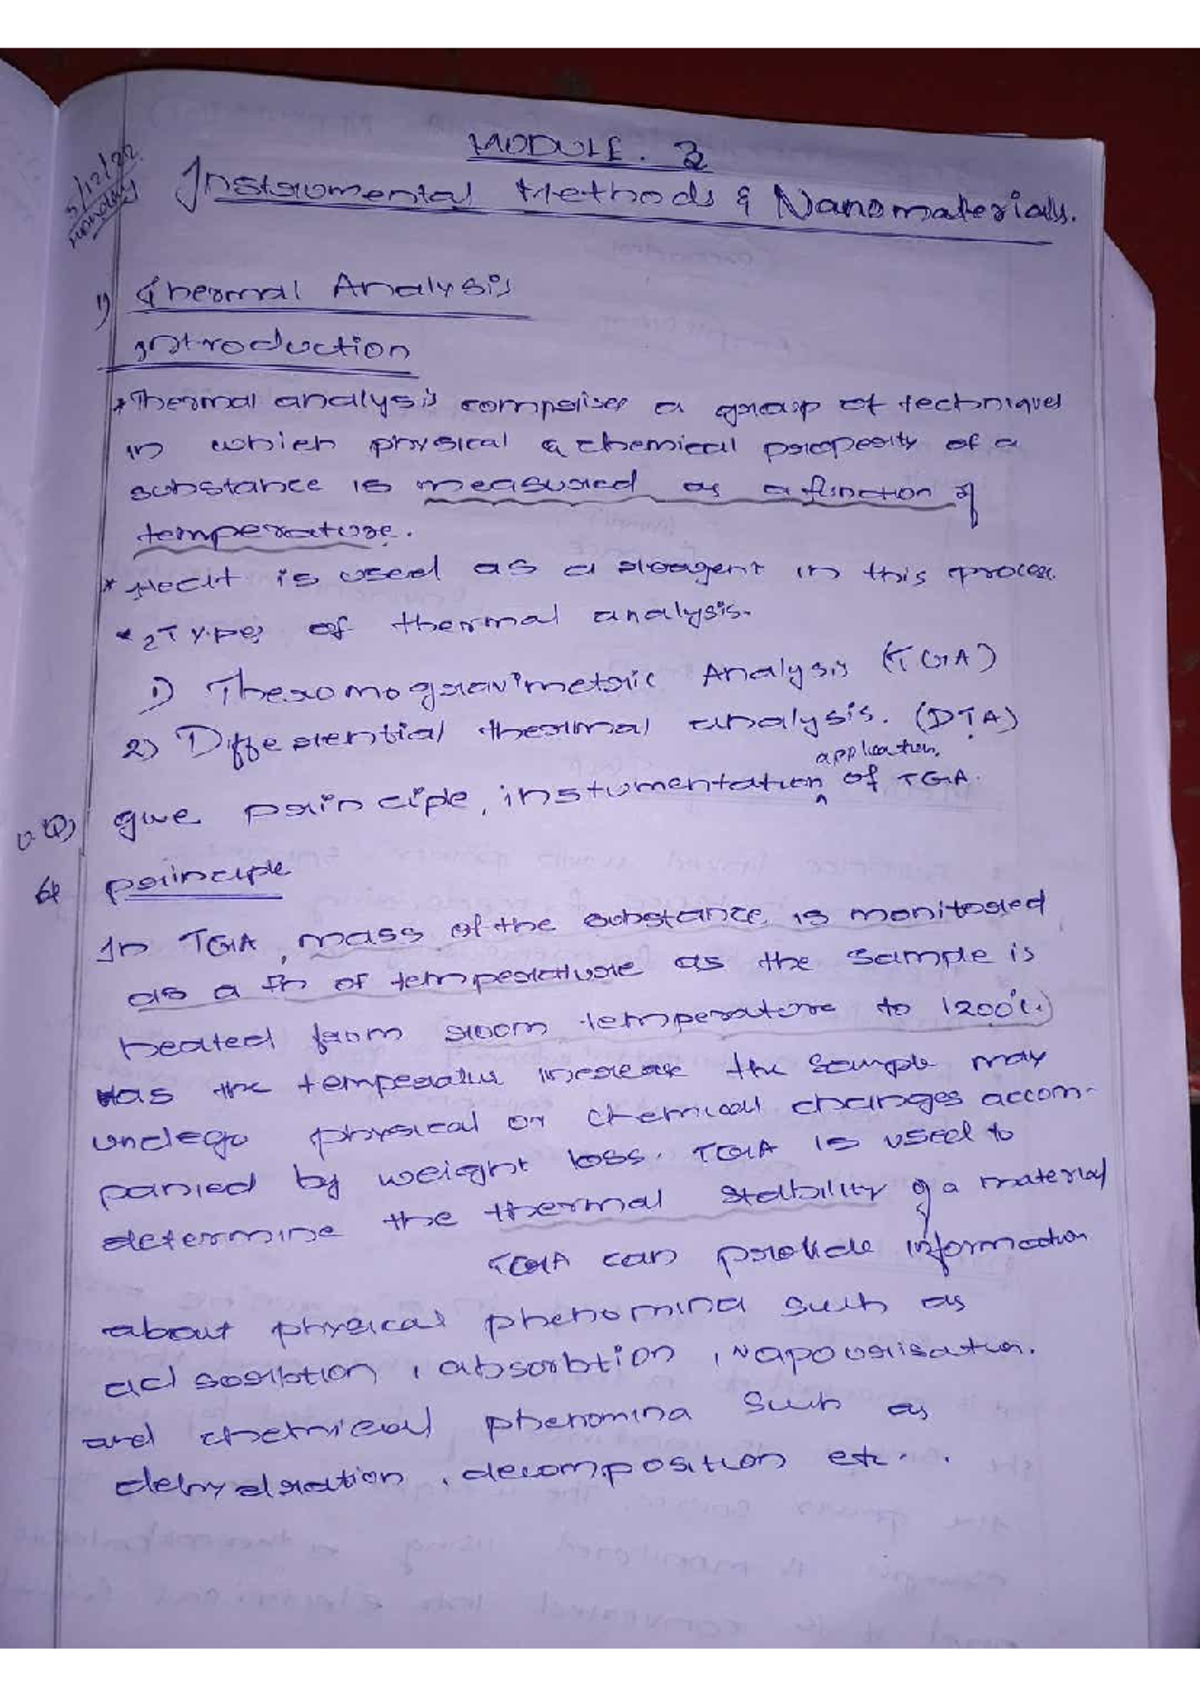 MODULE. 3
5/12/22
Monday
Instrumental Methods & Nanomaterials.
1) Thermal Analysis
Introduction
* Thermal analysis comprises a group of techniques
in which physical & chemical property of a
substance is measured as a function of
temperature.
* Heat is used as a reagent in this process.
* 2 Types of thermal analysis.
1) Thermogravimetric Analysis (TGA)
2) Differential thermal analysis. (DTA)
application,
Give principle, instumentation of TGA.
principle
In TGA, mass of the substance is monitored
as a fn of temperature as the sample is
heated from room temperature to 1200°C.
as the temperature increase the sample may
undego physical or chemical changes accom-
panied by weight loss. TGA is used to
determine the thermal stability of a material
TGA can provide information
about physical phenomina such as
adsorbtion, absorbtion, vapourisation.
and chemical phenomina such as
dehydration, decomposition etc..